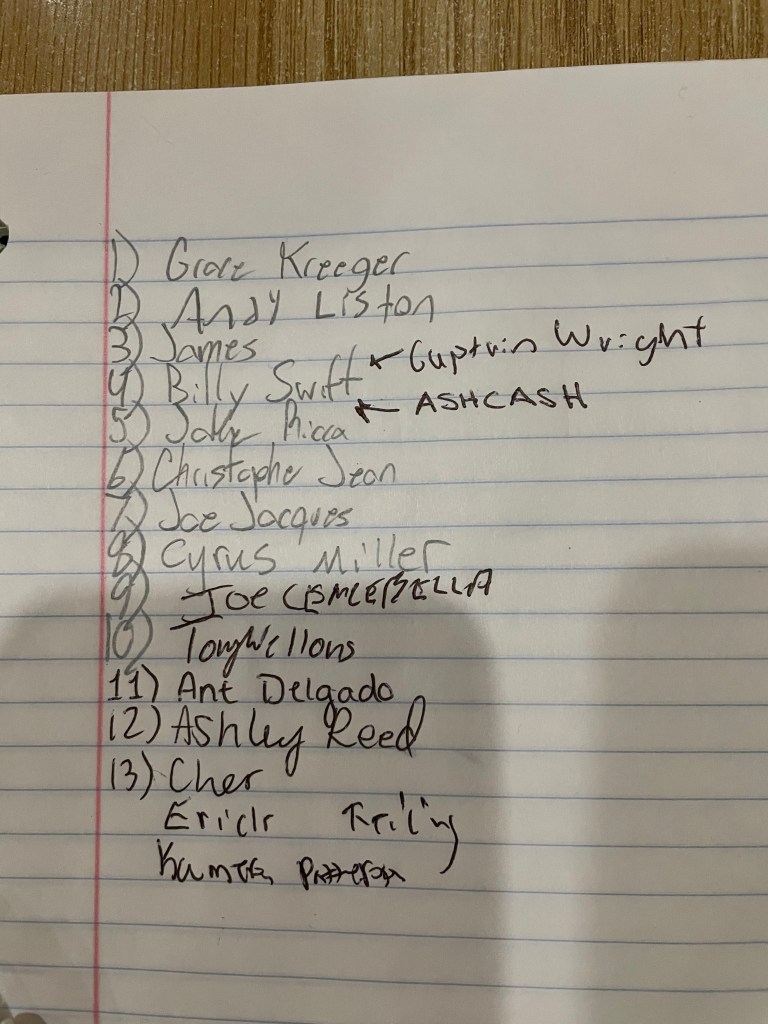 1) Grace Kreeger
2) Andy Liston
3) James
← Captain Wright
4) Billy Swift
← ASHCASH
5) Ricca
6) Christophe Jean
7) Joe Jacques
8) Cyrus Miller
9) Joe
10) Tony Wellons
11) Ant Delgado
12) Ashley Reed
13) Cher